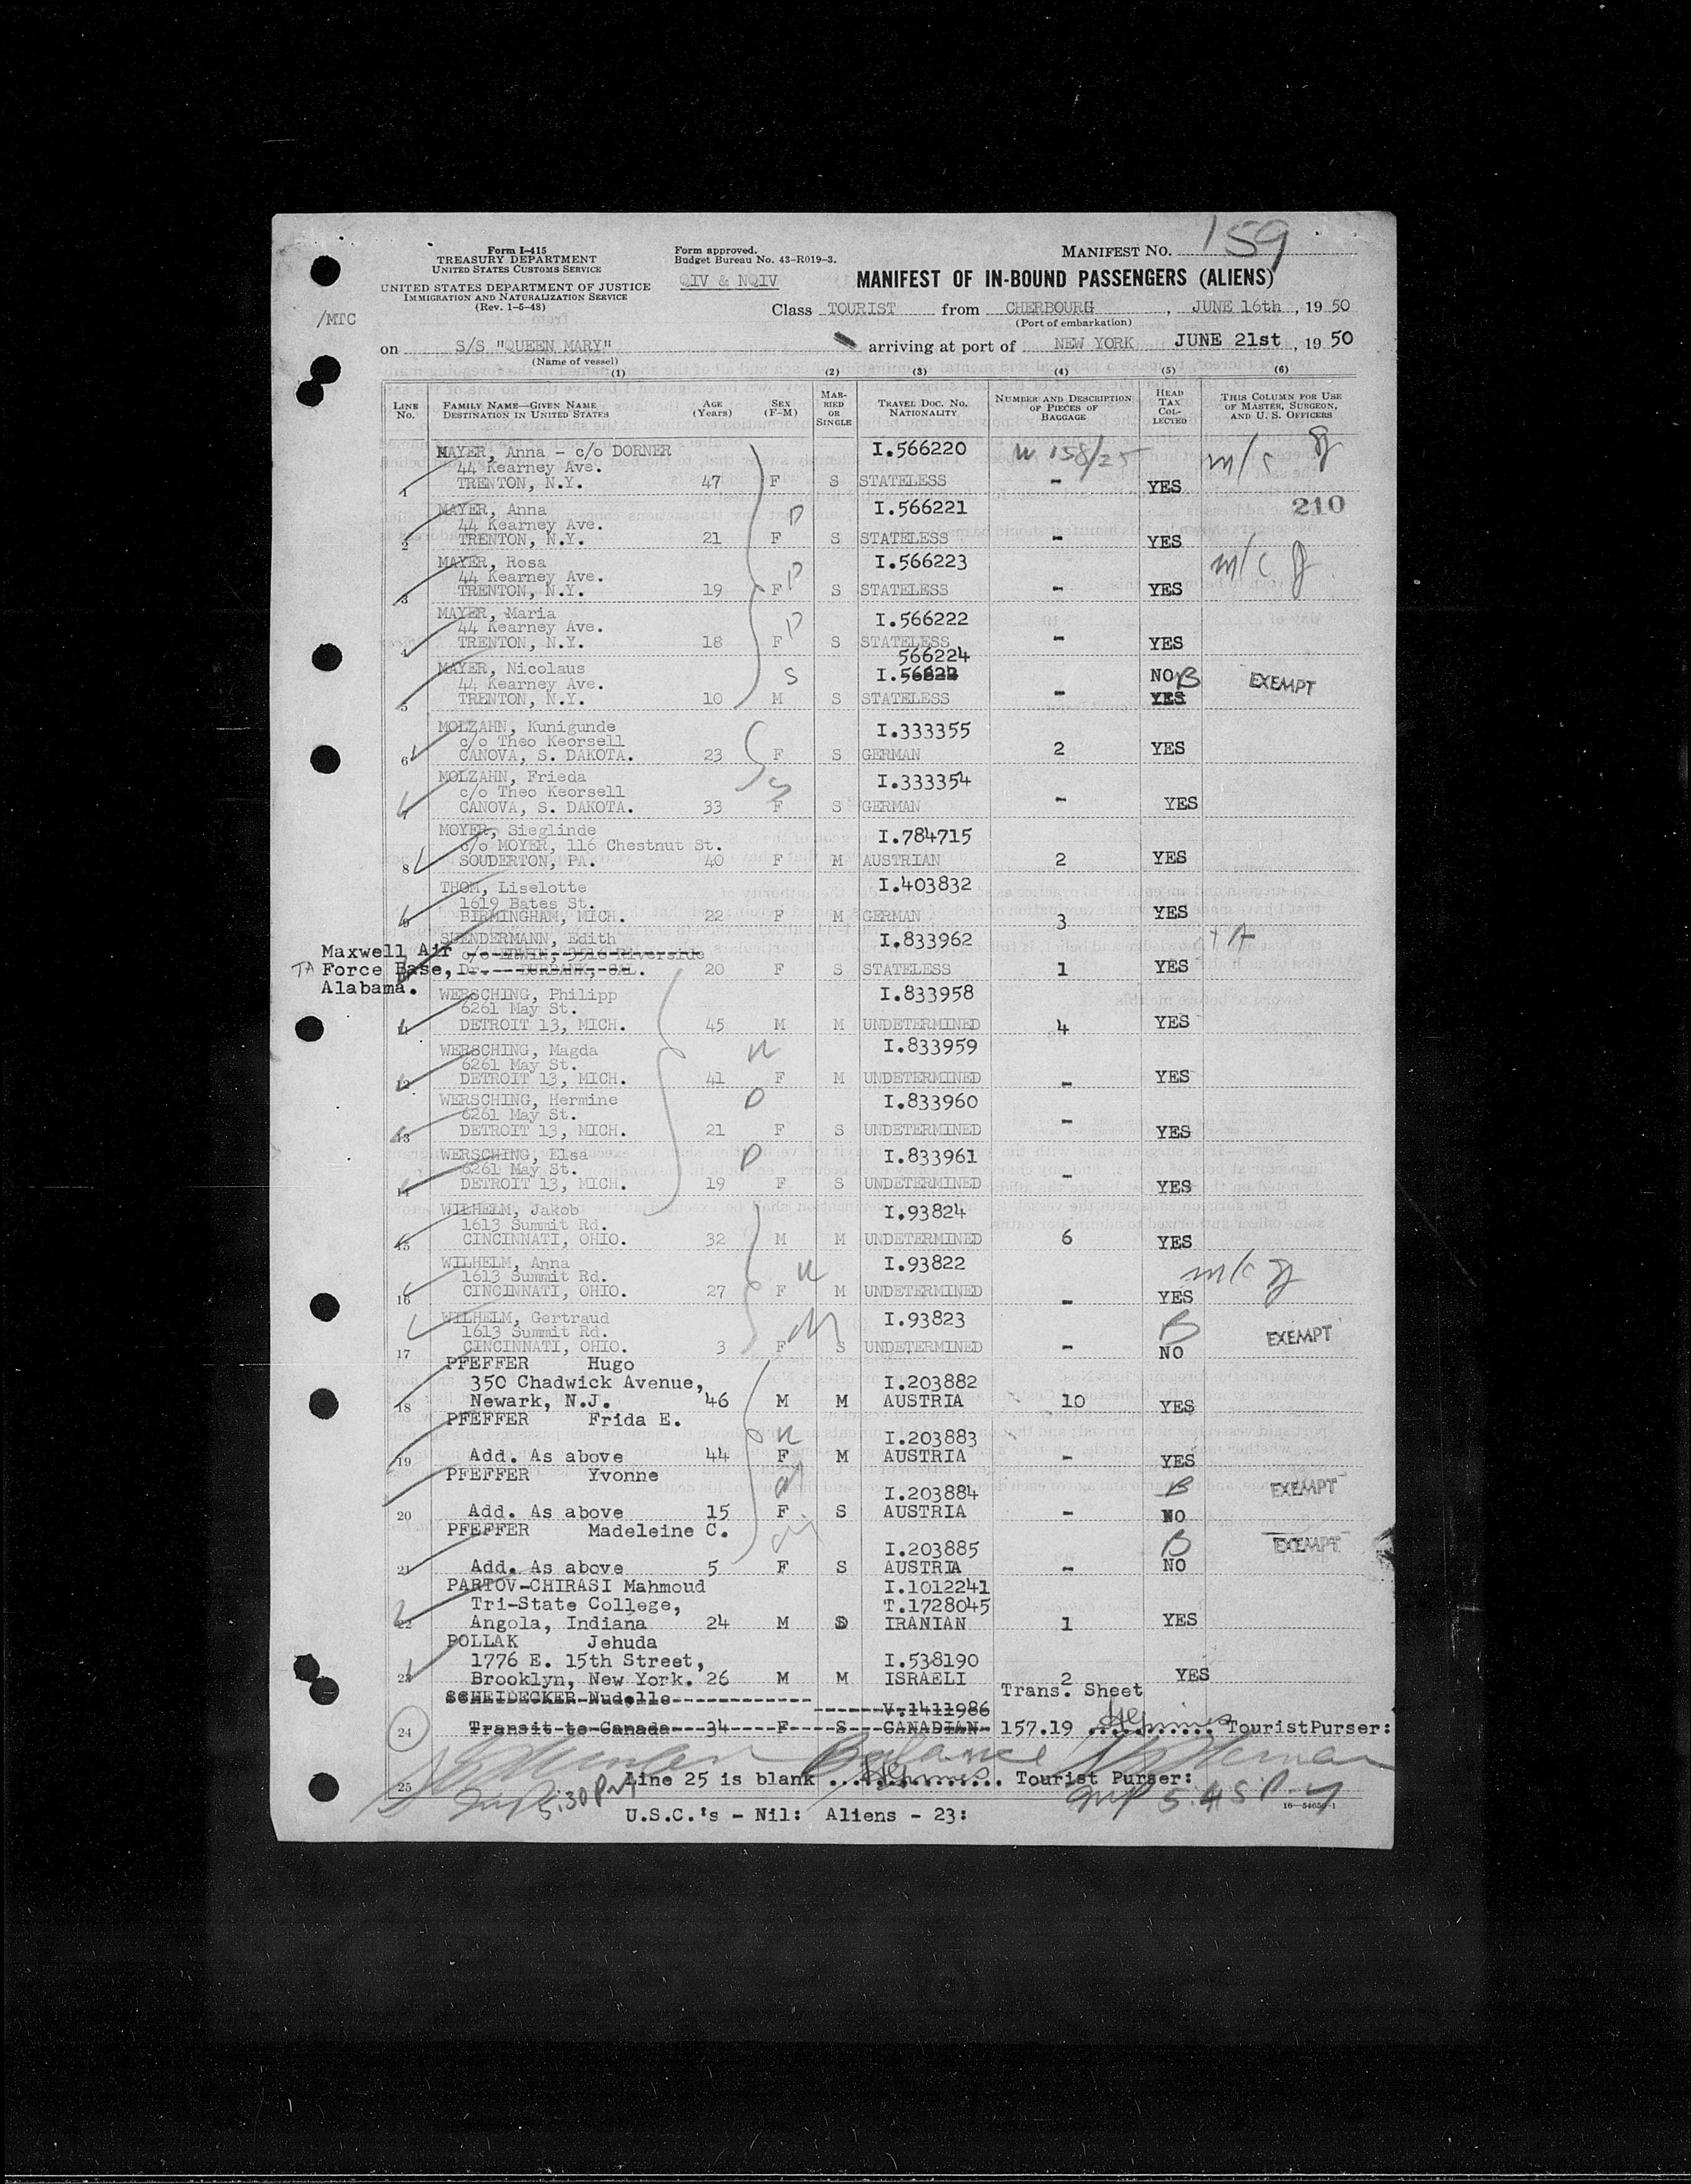 Form I-415
TREASURY DEPARTMENT
UNITED STATES CUSTOMS SERVICE
UNITED STATES DEPARTMENT OF JUSTICE
IMMIGRATION AND NATURALIZATION SERVICE
(Rev. 1-5-48)
/MTC
Form approved.
Budget Bureau No. 43-R019-3.
QIV & NQIV
MANIFEST NO. 159
MANIFEST OF IN-BOUND PASSENGERS (ALIENS)
Class TOURIST from CHERBOURG, JUNE 16th, 19 50
(Port of embarkation)
on S/S "QUEEN MARY" arriving at port of NEW YORK JUNE 21st, 19 50
(Name of vessel)
(1) (2) (3) (4) (5) (6)
LINE No. FAMILY NAME—GIVEN NAME DESTINATION IN UNITED STATES AGE (Years) SEX (F-M) MARRIED OR SINGLE TRAVEL DOC. NO. NATIONALITY NUMBER AND DESCRIPTION OF PIECES OF BAGGAGE HEAD TAX COLLECTED THIS COLUMN FOR USE OF MASTER, SURGEON, AND U. S. OFFICERS
MAYER, Anna - c/o DORNER I.566220 W 158/25 m/c
44 Kearney Ave.
1 TRENTON, N.Y. 47 F S STATELESS - YES
MAYER, Anna I.566221 210
44 Kearney Ave. D
2 TRENTON, N.Y. 21 F S STATELESS - YES
MAYER, Rosa I.566223 m/c
44 Kearney Ave. D
3 TRENTON, N.Y. 19 F S STATELESS - YES
MAYER, Maria I.566222
44 Kearney Ave. D
4 TRENTON, N.Y. 18 F S STATELESS - YES
566224
MAYER, Nicolaus I.56622 NO B EXEMPT
44 Kearney Ave. S
5 TRENTON, N.Y. 10 M S STATELESS - YES
MOLZAHN, Kunigunde I.333355
c/o Theo Keorsell
6 CANOVA, S. DAKOTA. 23 F S GERMAN 2 YES
MOLZAHN, Frieda I.333354
c/o Theo Keorsell
7 CANOVA, S. DAKOTA. 33 F S GERMAN - YES
MOYER, Sieglinde I.784715
c/o MOYER, 116 Chestnut St.
8 SOUDERTON, PA. 40 F M AUSTRIAN 2 YES
THOM, Liselotte I.403832
1619 Bates St.
9 BIRMINGHAM, MICH. 22 F M GERMAN 3 YES
SUENDERMANN, Edith I.833962
Maxwell Air c/o ERWIN, Riverside
TA Force Base, Dr. BURBANK, CAL. 20 F S STATELESS 1 YES
Alabama.
WERSCHING, Philipp I.833958
6261 May St.
11 DETROIT 13, MICH. 45 M M UNDETERMINED 4 YES
WERSCHING, Magda I.833959
6261 May St.
12 DETROIT 13, MICH. 41 F M UNDETERMINED - YES
WERSCHING, Hermine I.833960
6261 May St. D
13 DETROIT 13, MICH. 21 F S UNDETERMINED - YES
WERSCHING, Elsa I.833961
6261 May St. D
14 DETROIT 13, MICH. 19 F S UNDETERMINED - YES
WILHELM, Jakob I.93824
1613 Summit Rd.
15 CINCINNATI, OHIO. 32 M M UNDETERMINED 6 YES
WILHELM, Anna I.93822
1613 Summit Rd. m/c
16 CINCINNATI, OHIO. 27 F M UNDETERMINED - YES
WILHELM, Gertraud I.93823
1613 Summit Rd. B EXEMPT
17 CINCINNATI, OHIO. 3 F S UNDETERMINED - NO
PFEFFER Hugo
350 Chadwick Avenue, I.203882
18 Newark, N.J. 46 M M AUSTRIA 10 YES
PFEFFER Frida E.
I.203883
19 Add. As above 44 F M AUSTRIA - YES
PFEFFER Yvonne
I.203884 B EXEMPT
20 Add. As above 15 F S AUSTRIA - NO
PFEFFER Madeleine C.
I.203885 B EXEMPT
21 Add. As above 5 F S AUSTRIA - NO
PARTOV-CHIRASI Mahmoud I.1012241
Tri-State College, T.1728045
22 Angola, Indiana 24 M S IRANIAN 1 YES
POLLAK Jehuda
1776 E. 15th Street, I.538190
23 Brooklyn, New York. 26 M M ISRAELI 2 YES
SCHEIDECKER Nudelle Trans. Sheet
V.1411986
24 Transit to Canada 34 F S CANADIAN 157.19 ............ Tourist Purser:
Balance
25 Line 25 is blank ............... Tourist Purser:
5.30 PM 5.45 P.M
U.S.C.'s - Nil: Aliens - 23:
16—54650-1